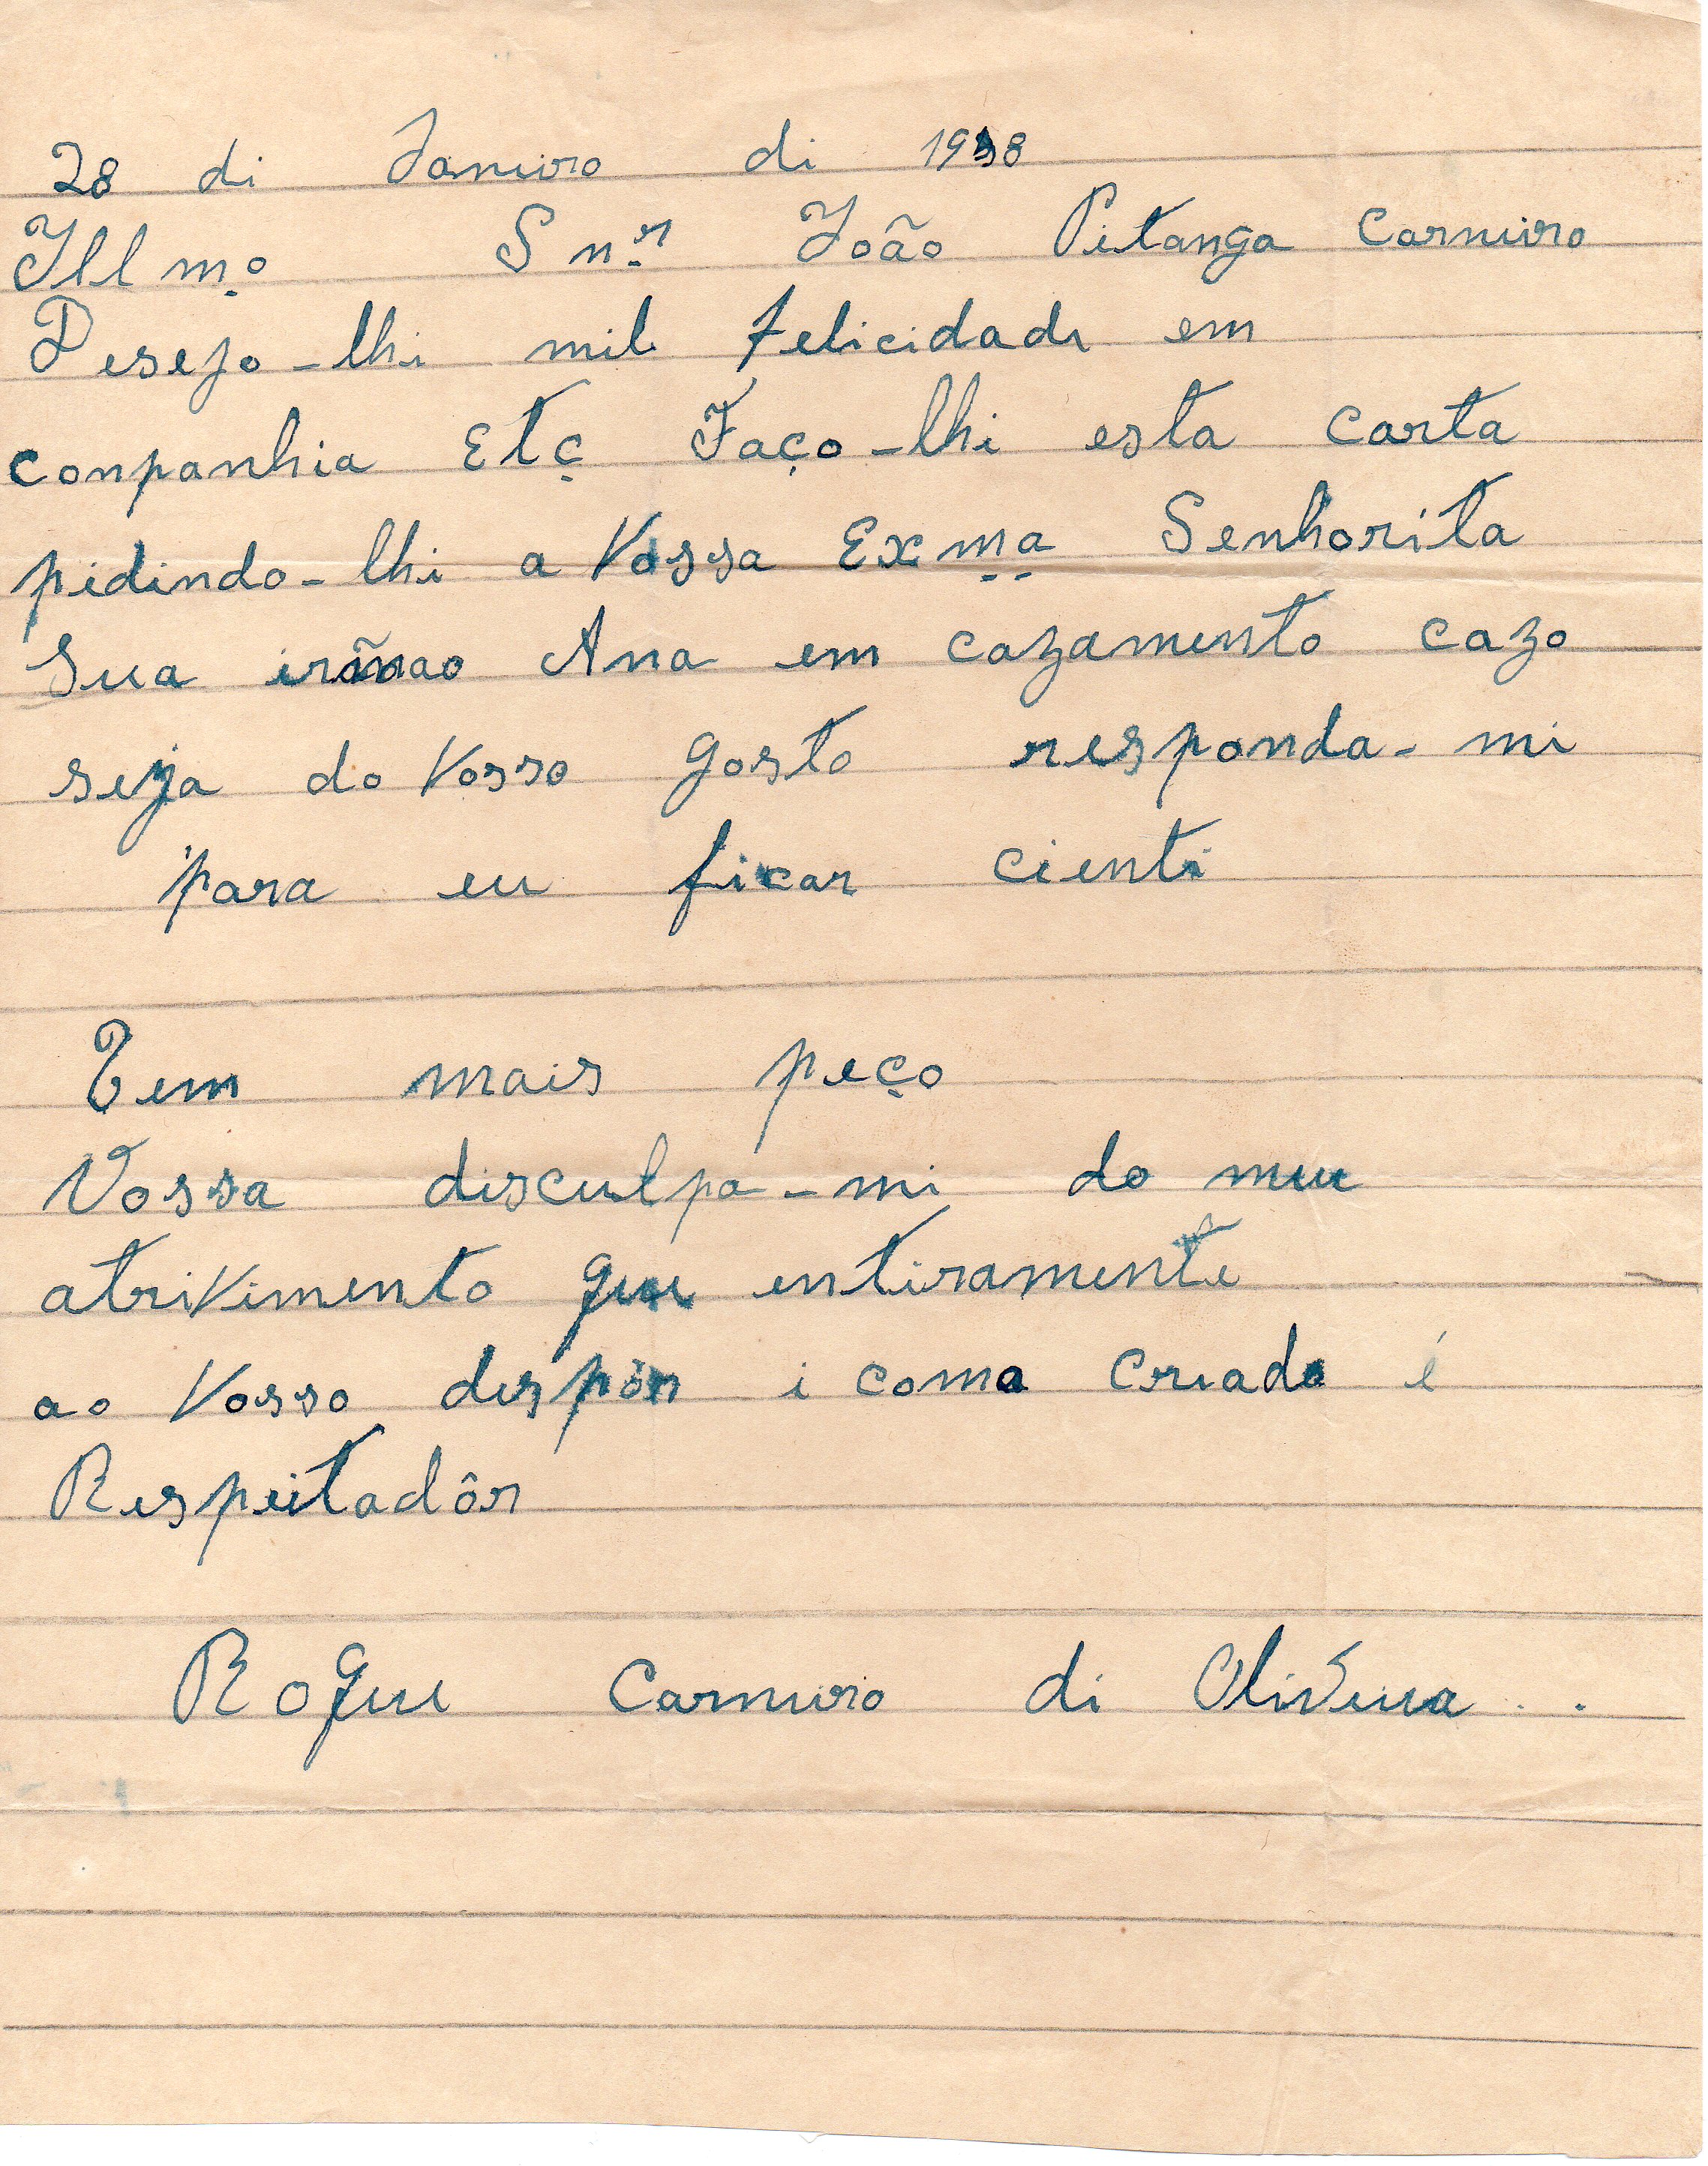 28 di Janeiro di 1958
Illmo Snr João Pitanga Carneiro
Desejo-lhi mil felicidadi em
conpanhia Etc Faço-lhi esta carta
pidindo-lhi a Vossa Exma Senhorita
Sua Ana em cazamento cazo
seja do Vosso gosto responda-mi
para eu ficar cienti
Tem mais peço
Vossa disculpa-mi do meu
atrivimento que enteiramente
ao Vosso dispôr i como criado é
Respeitadôr
Roque Carneiro di Oliveira . .